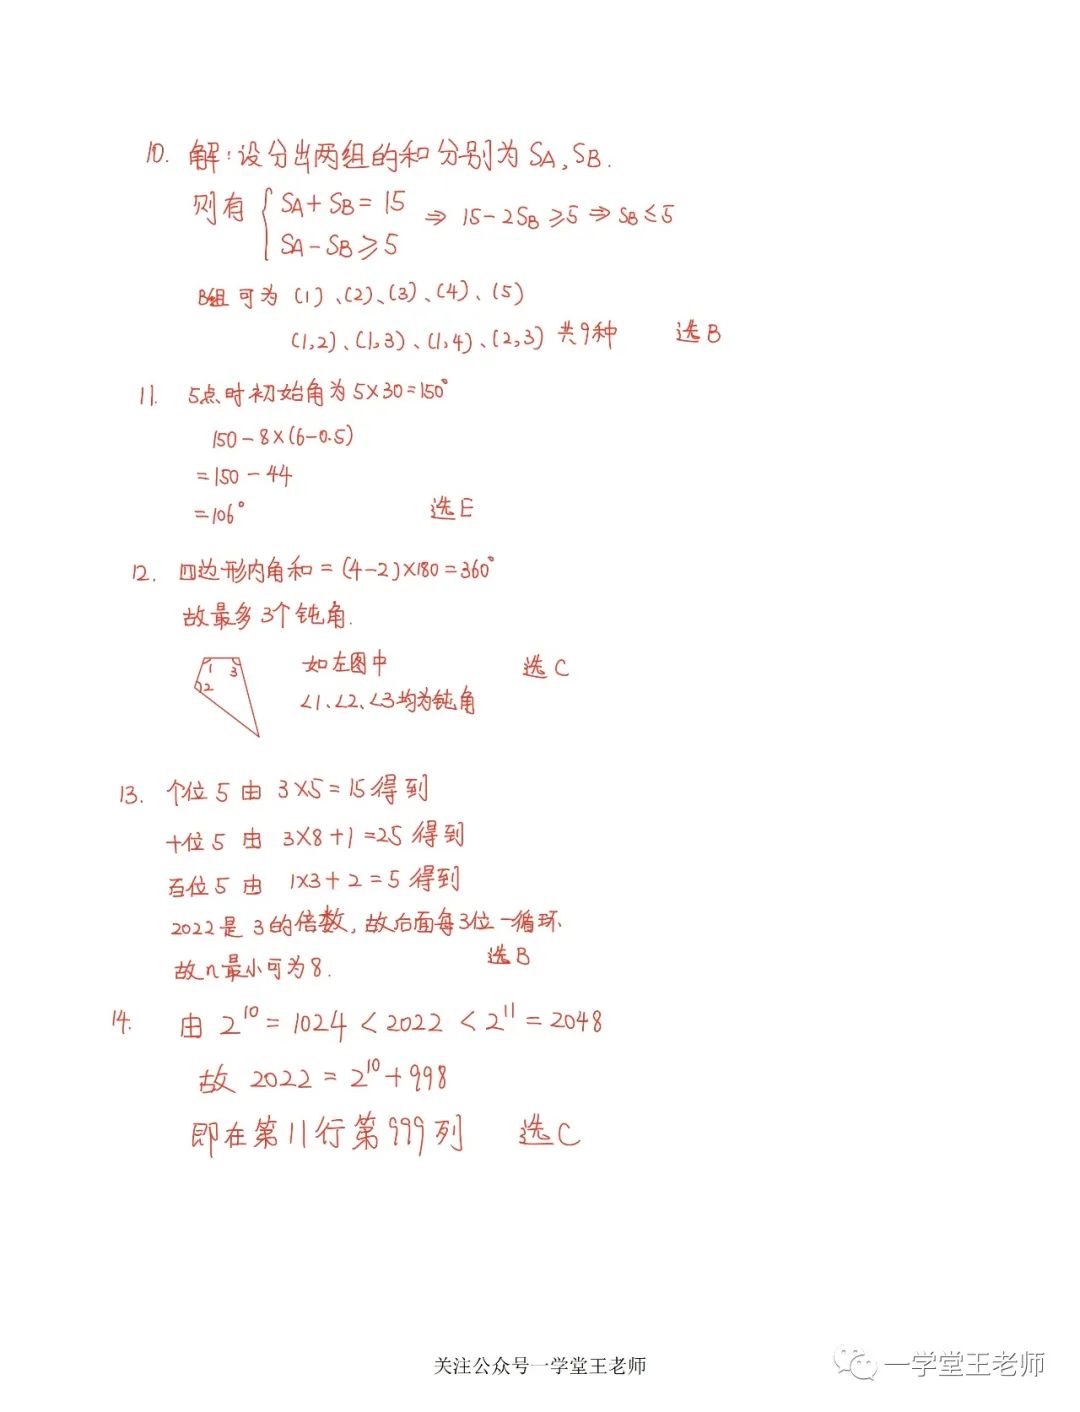 10. 解:设分出两组的和分别为 SA, SB.
则有 { SA+SB=15
SA-SB≥5 ⇒ 15-2SB≥5 ⇒ SB≤5
B组可为 (1)、(2)、(3)、(4)、(5)
(1,2)、(1,3)、(1,4)、(2,3) 共9种 选B
11. 5点时初始角为 5×30=150°
150-8×(6-0.5)
=150-44
=106° 选E
12. 四边形内角和=(4-2)×180=360°
故最多3个钝角.
1 3 2
如左图中 选C
∠1、∠2、∠3均为钝角
13. 个位5由 3×5=15得到
十位5由 3×8+1=25得到
百位5由 1×3+2=5得到
2022是3的倍数,故后面每3位一循环.
故n最小可为8. 选B
14. 由 2^10=1024<2022<2^11=2048
故 2022=2^10+998
即在第11行第999列 选C
关注公众号一学堂王老师
一学堂王老师